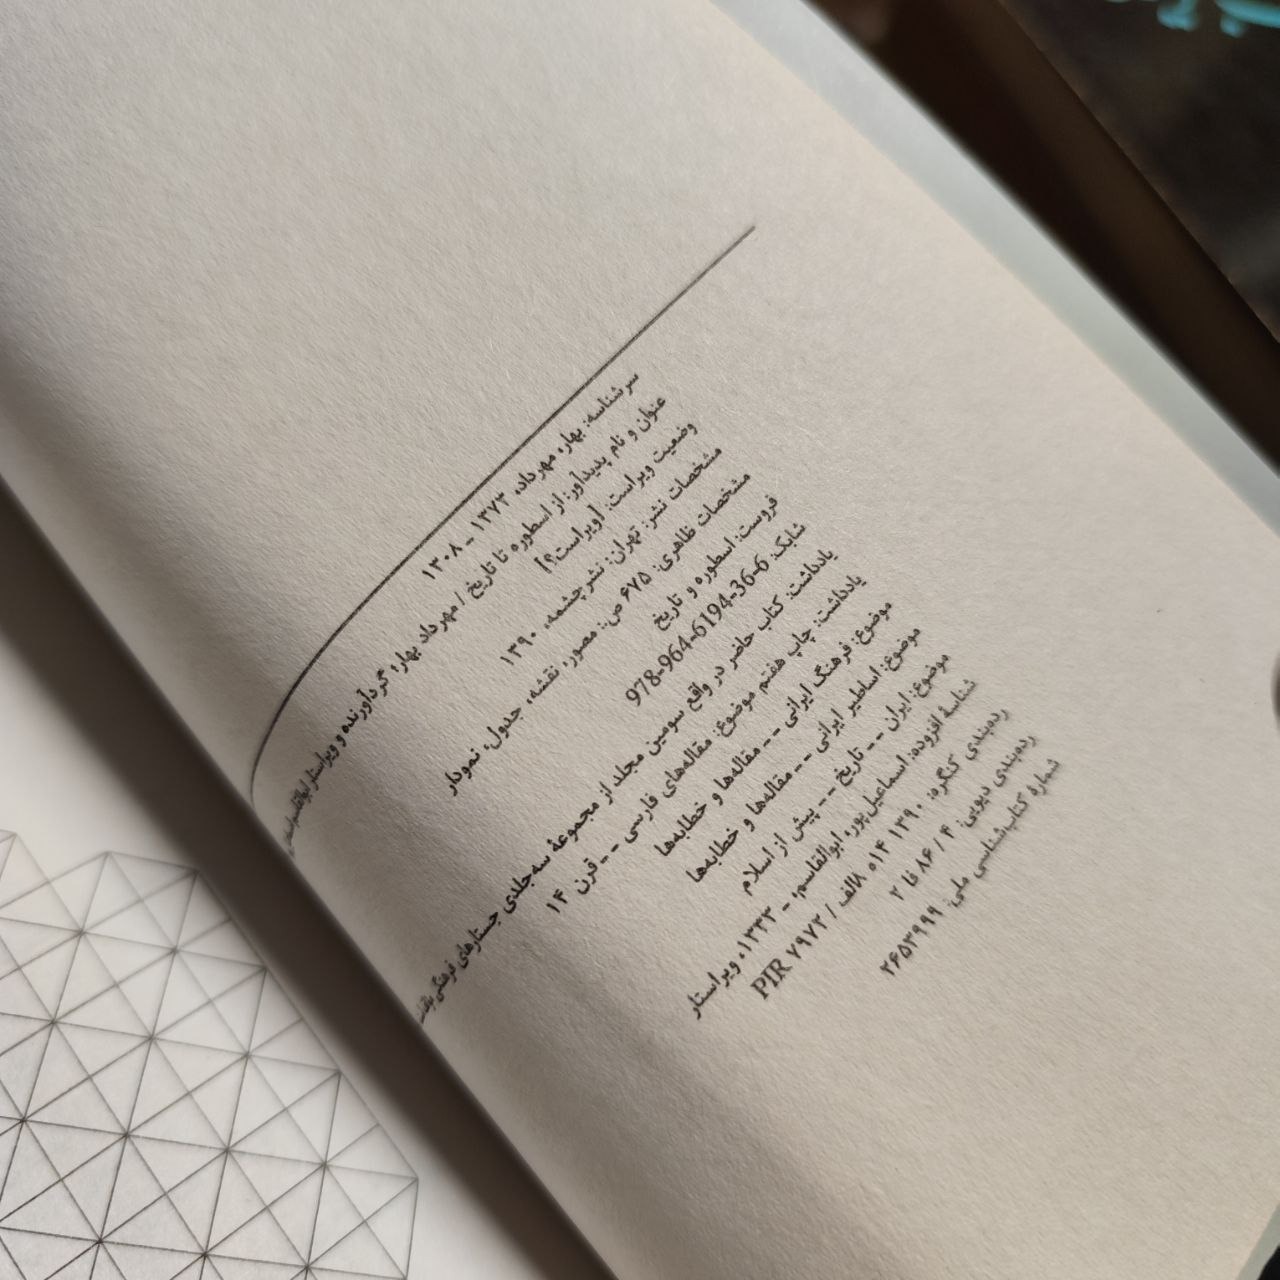 سرشناسه: بهار، مهرداد، ۱۳۷۳ ـ ۱۳۰۸
عنوان و نام پدیدآور: از اسطوره تا تاریخ / مهرداد بهار؛ گردآورنده و ویراستار ابوالقاسم
وضعیت ویراست: [ویراست؟]
مشخصات نشر: تهران: نشرچشمه، ۱۳۹۰
مشخصات ظاهری: ۶۷۵ ص.: مصور، نقشه، جدول، نمودار
فروست: اسطوره و تاریخ
شابک: 978-964-6194-36-6
یادداشت: کتاب حاضر در واقع سومین مجلد از مجموعهٔ سه‌جلدی جستارهای فرهنگی
یادداشت: چاپ هفتم موضوع: مقاله‌های فارسی -- قرن ۱۴
موضوع: فرهنگ ایرانی -- مقاله‌ها و خطابه‌ها
موضوع: اساطیر ایرانی -- مقاله‌ها و خطابه‌ها
موضوع: ایران -- تاریخ -- پیش از اسلام
شناسهٔ افزوده: اسماعیل‌پور، ابوالقاسم، - ۱۳۳۳، ویراستار
رده‌بندی کنگره: ۱۳۹۰ ۱۴ه ۸الف / PIR ۷۹۷۲
رده‌بندی دیویی: ۴ / ۸۶ فا ۲
شمارهٔ کتاب‌شناسی ملی: ۲۶۵۳۹۹۹